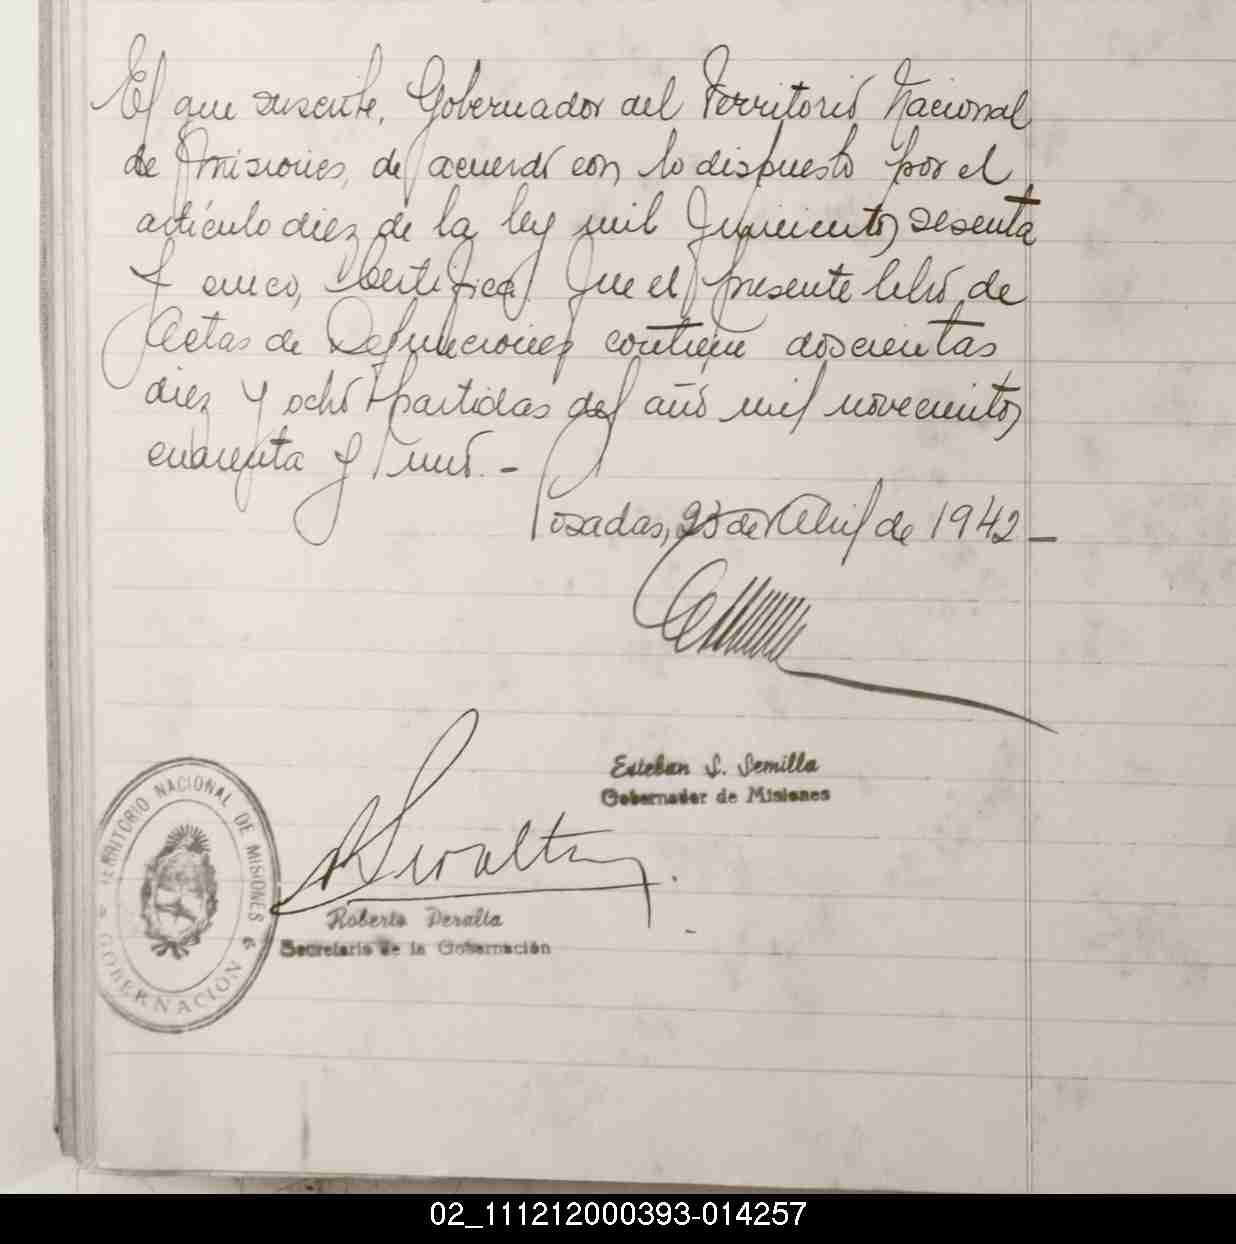 El que suscribe, Gobernador del Territorio Nacional
de Misiones, de acuerdo con lo dispuesto por el
artículo diez de la ley mil quinientos sesenta
y cinco, Certifica: Que el presente libro de
Actas de Defunciones contiene doscientas
diez y ocho partidas del año mil novecientos
cuarenta y uno.-
Posadas, 23 de Abril de 1942-
Esteban S. Semilla
Gobernador de Misiones
R Peralta
Roberto Peralta
Secretario de la Gobernación
TERRITORIO NACIONAL DE MISIONES
GOBERNACION
02_111212000393-014257